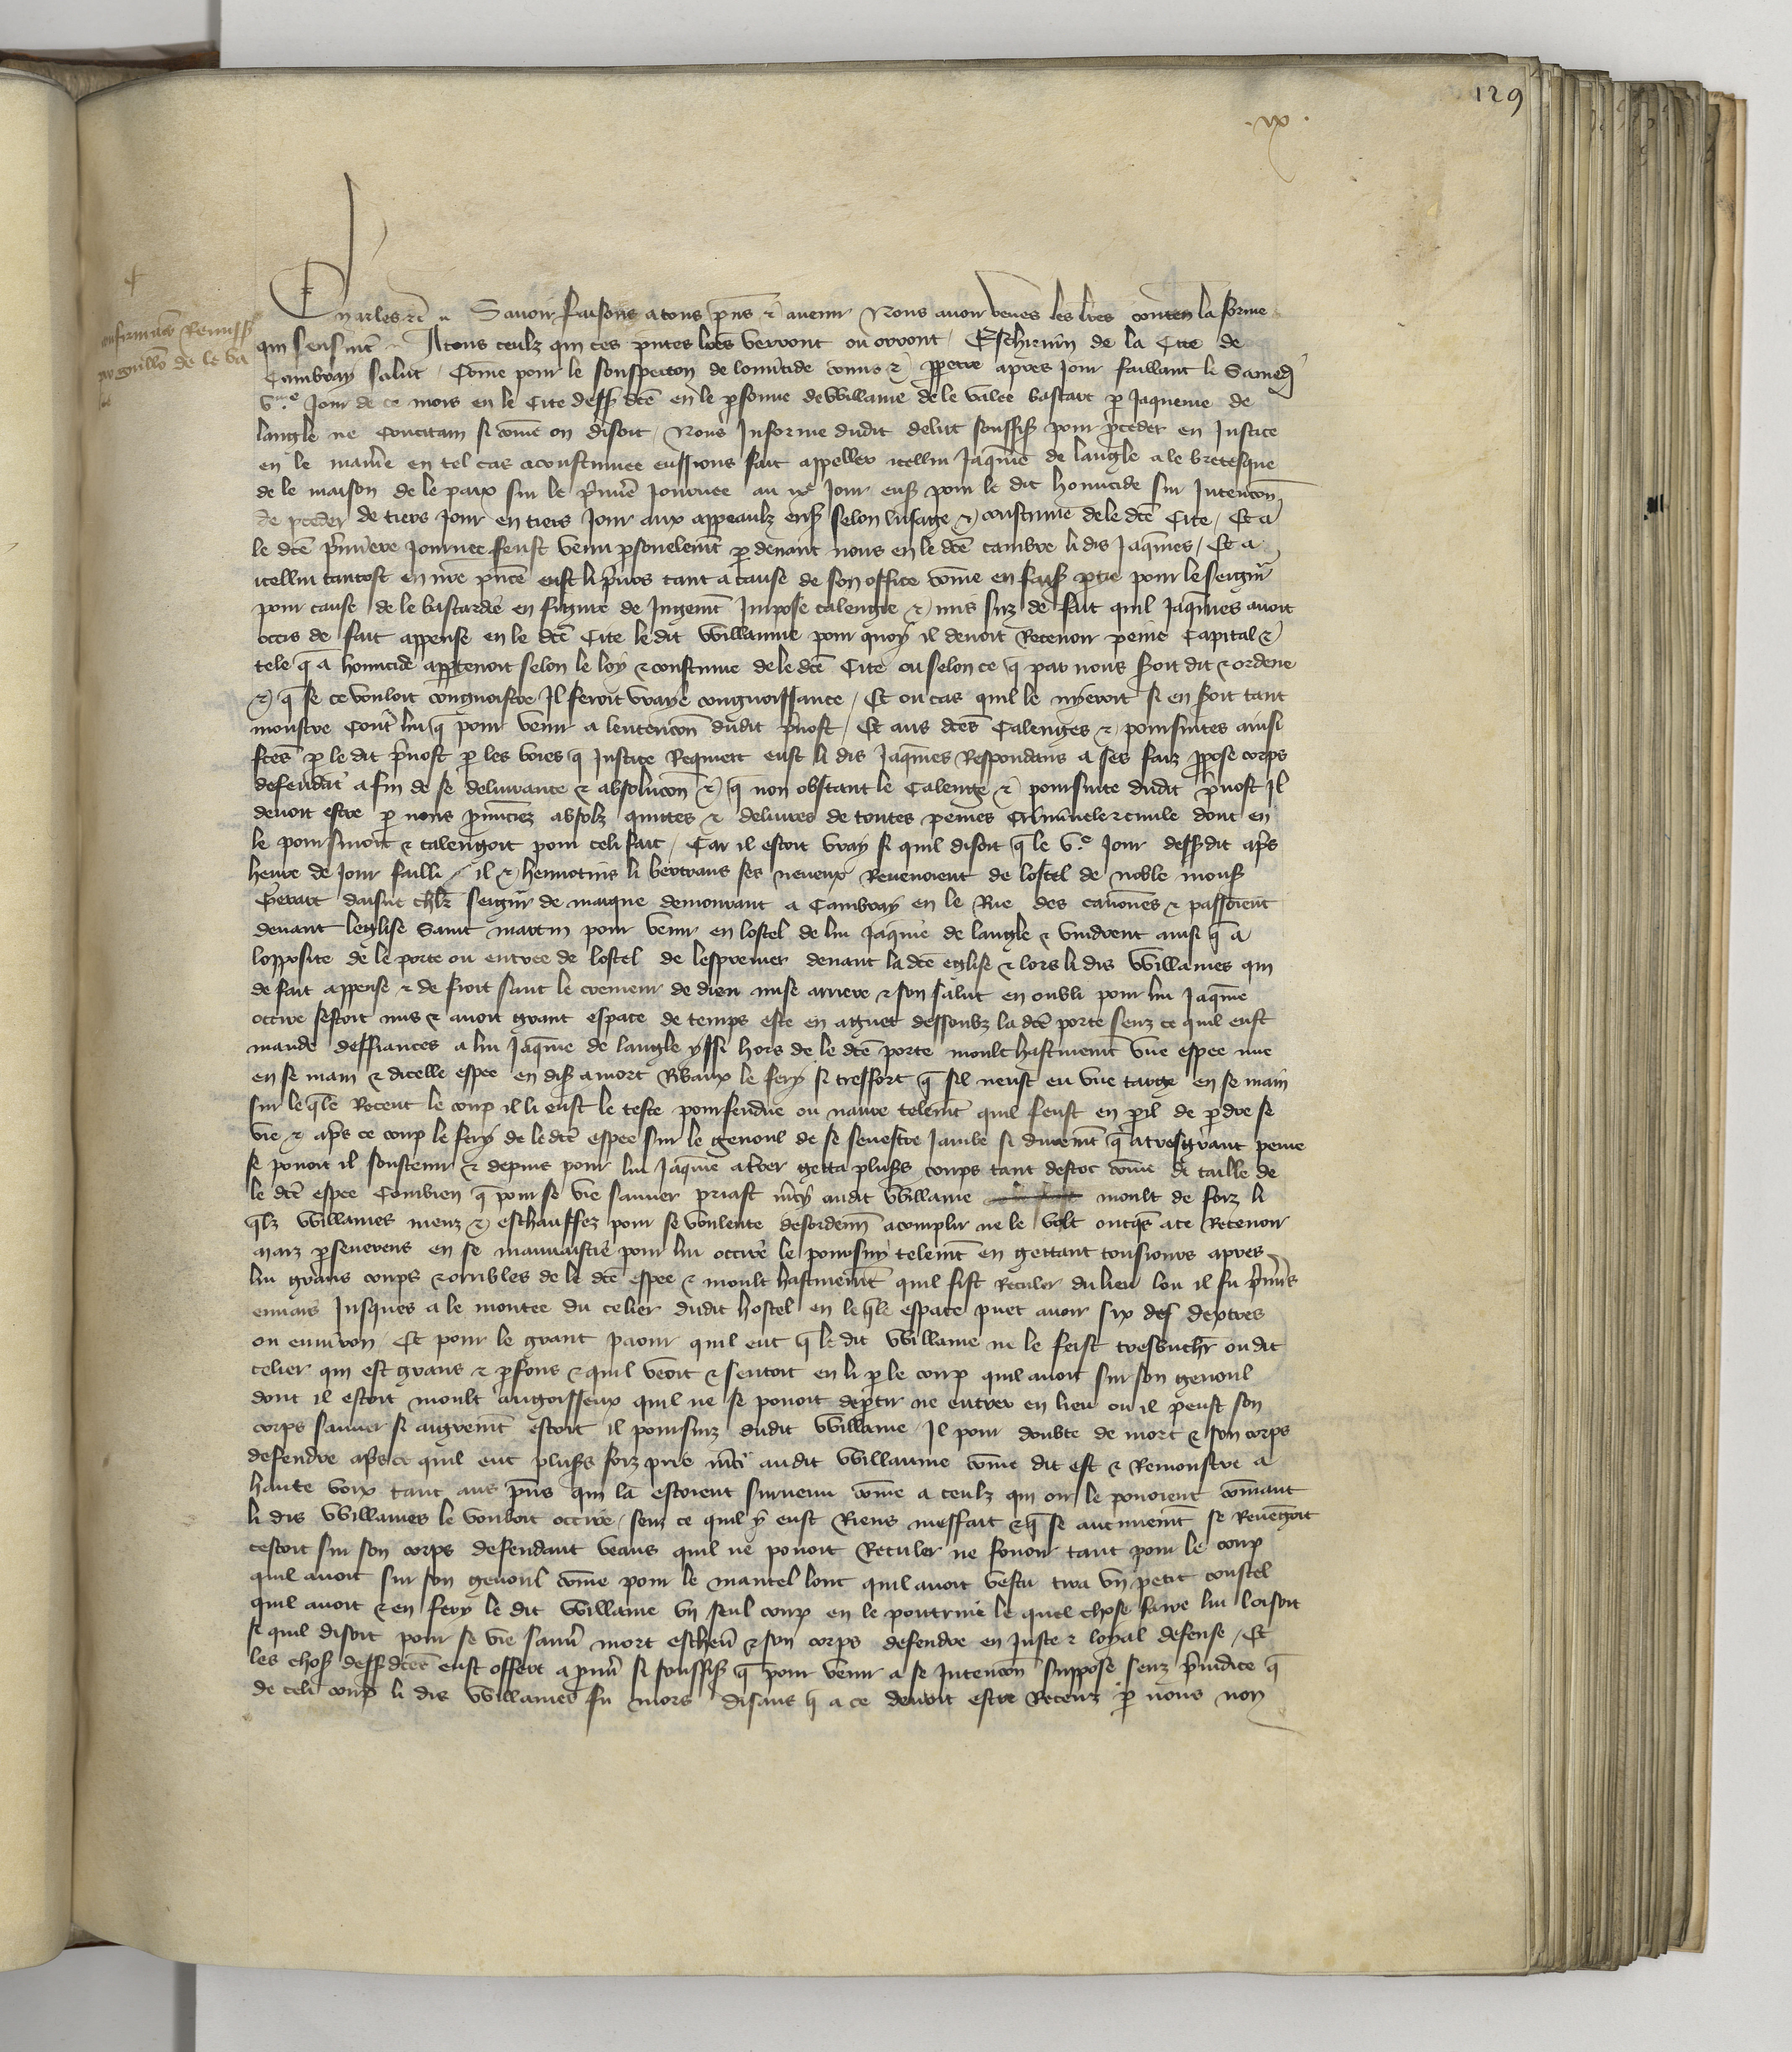 129
. ix .
Charles etc. Savoir faisons a tous pns et avenir Nous avon veues les lres conten la forme
confirmac Remiss
qui sensuit Atous ceulz qui ces pntes lres verront ou orront / Eschevin de la Cite de
pour guillo de le va
Cambray salut / Come pour le souspecon de lomicide comis et ppetre apres Jour faillant le Samedi
v.me Jour de ce mois en le Cite dess dce en le psonne de Willame de le valee bastart p Jaqueme de
langle ne concitain si come on disoit / Nous Informe dudit delict souffis pour pceder en Justice
en le maniere en tel cas acoustumee eussions fait appeller icellui Jaqme de langle a le bretesque
de le maison de le paix sur le pmiere Journee au ixe Jour ens pour le dit homicide sur Intencon
de pceder de tiers Jour en tiers Jour aux appeaulz ens selon lusage et coustume de le dce Cite / Et a
le dce pmiere Journee feust venu psonelemt p devant nous en le dce cambre li dis Jaqmes / Et a
icellui tantost en nre pnce eust li pvos tant a cause de son office come en fais ptie pour le seignr
pour cause de le bastardie en figure de Jugemt Impose calengie et mis suz de fait quil Jaqmes avoit
occis de fait appense en le dce Cite le dit Willamme pour quoy il devoit Recevoir peine Capital et
tele q a homicide apptenoit selon le loy et coustume de le dce Cite ou selon ce q par nous soit dit et ordene
et q se ce vouloit congnoistre Il feroit vraye congnoissance / Et ou cas quil le nyeroit si en soit tant
monstre Cont lui q pour venir a lentencon dudit pvost / Et aus dces Calenges et poursuites ainsi
fces p le dit pvost p les voies q Justice Requiert eust li dis Jaqmes Respondans a ses faiz ppose corps
defendat a fin de se delivrance et absolucon et q non obstant le Calenge et poursuite dudit pvost Il
devoit estre p nous pnunciez absolz quittes et delivres de toutes peines Criminele et civile dont en
le poursuioit et calengoit pour celi fait / Car il estoit vray si quil disoit q le v.e Jour dessdit aps
heure de Jour failli il et hennotins li bertrans ses neveux Revenoient de lostel de noble mons
Gerart dausut chlr seignr de maique demourant a Cambray en le Rue des canones et passoient
devant leglise Saint martin pour venir en lostel de lui Jaqme de langle et vindrent ainsi q a
lopposite de le porte ou entree de lostel de lesprevier devant la dce eglise et lors li dis Willames qui
de fait appense et de froit sanc le cremeur de dieu mise arriere et son salut en oubli pour lui Jaqme
occire sestoit mis et avoit grant espace de temps este en aguet dessoubz la dce porte senz ce quil eust
mande deffiances a lui Jaqme de langle yssi hors de le dce porte moult hastivemt une espee nue
en se main et dicelle espee en dis a mort Ribaux le fery si tresfort q sil neust eu une targe en se main
sur leqle Receut le coup il li eust le teste pourfendue ou navre telemt quil feust en pil de pdre se
vie et aps ce coup le fery de le dce espee sur le genoul de se senestre Jambe si durement q a tresgrant peine
se pouoit il soustenir et depuis pour lui Jaqme atuer getta plus coups tant destoc come de taille de
le dce espee Combien q pour se vie sauver priast mcy audit Willame moult de foiz li
qlz Willames meuz et eschauffez pour se voulente desorden acomplir ne le volt oncqs a ce Recevoir
maiz pseverens en se mauvaistie pour lui occire le poursuy telemt en gettant tousiours apres
lui grans coups et orribles de le dce espee et moult hastivement quil fist Reculer du lieu lou il fu pmiers
envais Jusques a le montee du celier dudit hostel en leqle espace puet avoir six des dextres
ou environ / Et pour le grant paour quil eut q le dit Willame ne le feist tresbuchr ou dit
celier qui est grans et pfons et quil veoit et sentoit en li p le coup quil avoit sur son genoul
dont il estoit moult angoisseux quil ne se pouoit deptir ne entrer en lieu ou il peust son
corps sauver si aigremt estoit il poursuiz dudit Willame Il pour doubte de mort et son corps
defendre aps ce quil eut pluss foiz prie mci audit Willaume come dit est et Remonstre a
haute voix tant aus pns qui la estoient survenu come a ceulz qui oir le pouoient comant
li dis Willames le vouloit occire / senz ce quil y eust Riens meffait et q se aucunemt se Revengoit
cestoit sur son corps defendant veans quil ne pouoit Reculer ne fouoir tant pour le coup
quil avoit sur son genoul come pour le mantel lonc quil avoit vestu tira un petit coustel
quil avoit et en fery le dit Willame un seul coup en le poutrine le quel chose faire lui loisoit
si quil disoit pour se vie sauver mort eschever et son corps defendre en Juste et loyal defense / Et
les chos dessdctes eust offert a puver si souffis q pour venir a se Intencon suppose senz pJudice q
de celi coup li dis Willames fu mors disans q a ce devoit estre Receuz p nous non